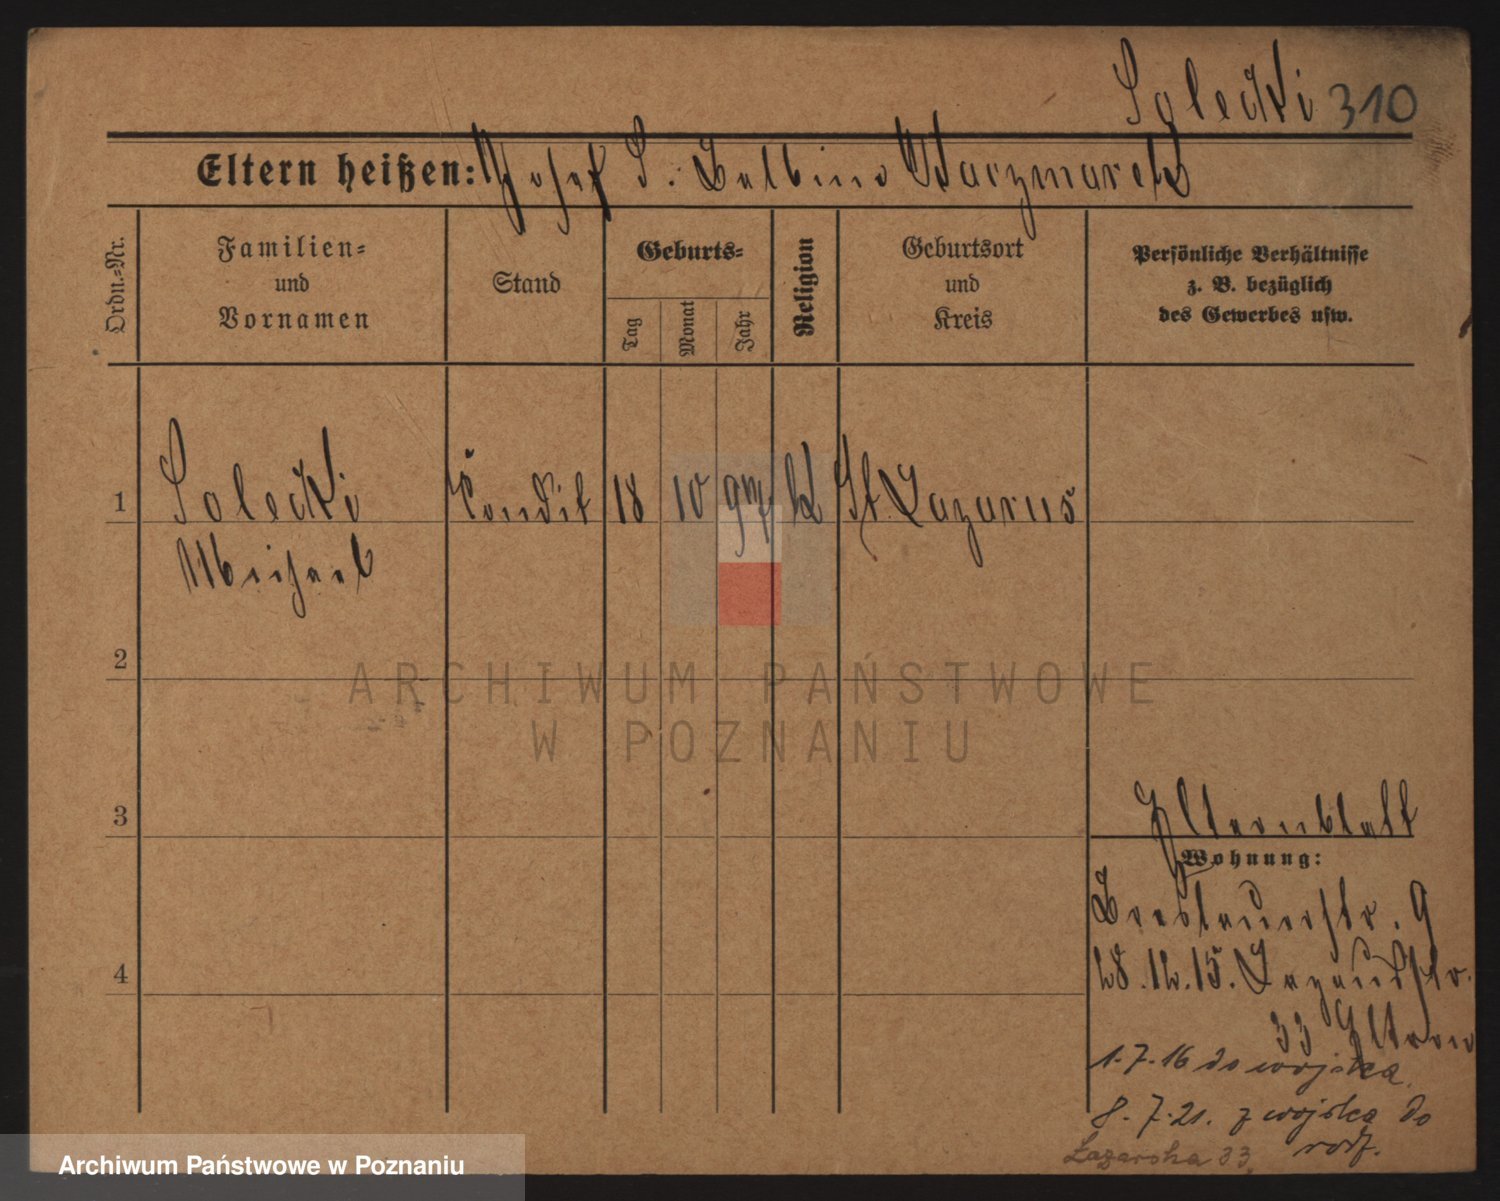 Solecki 310
Eltern heißen: Josef S. Balbina Kaczmarek
Ordn.-Nr.
Familien-
und
Vornamen
Stand
Geburts-
Tag
Monat
Jahr
Religion
Geburtsort
und
Kreis
Persönliche Verhältnisse
z. B. bezüglich
des Gewerbes usw.
1 Solecki Condit 18 10 97 k St. Lazarus
Michael
2
ARCHIWUM PAŃSTWOWE
W POZNANIU
3
Elternblatt
Wohnung:
Breslauerstr. 9
4
28.12.15. 
33 Eltern
1.7.16 do wojska
8.7.21. z wojska do
rodz.
Łazarska 33
Archiwum Państwowe w Poznaniu